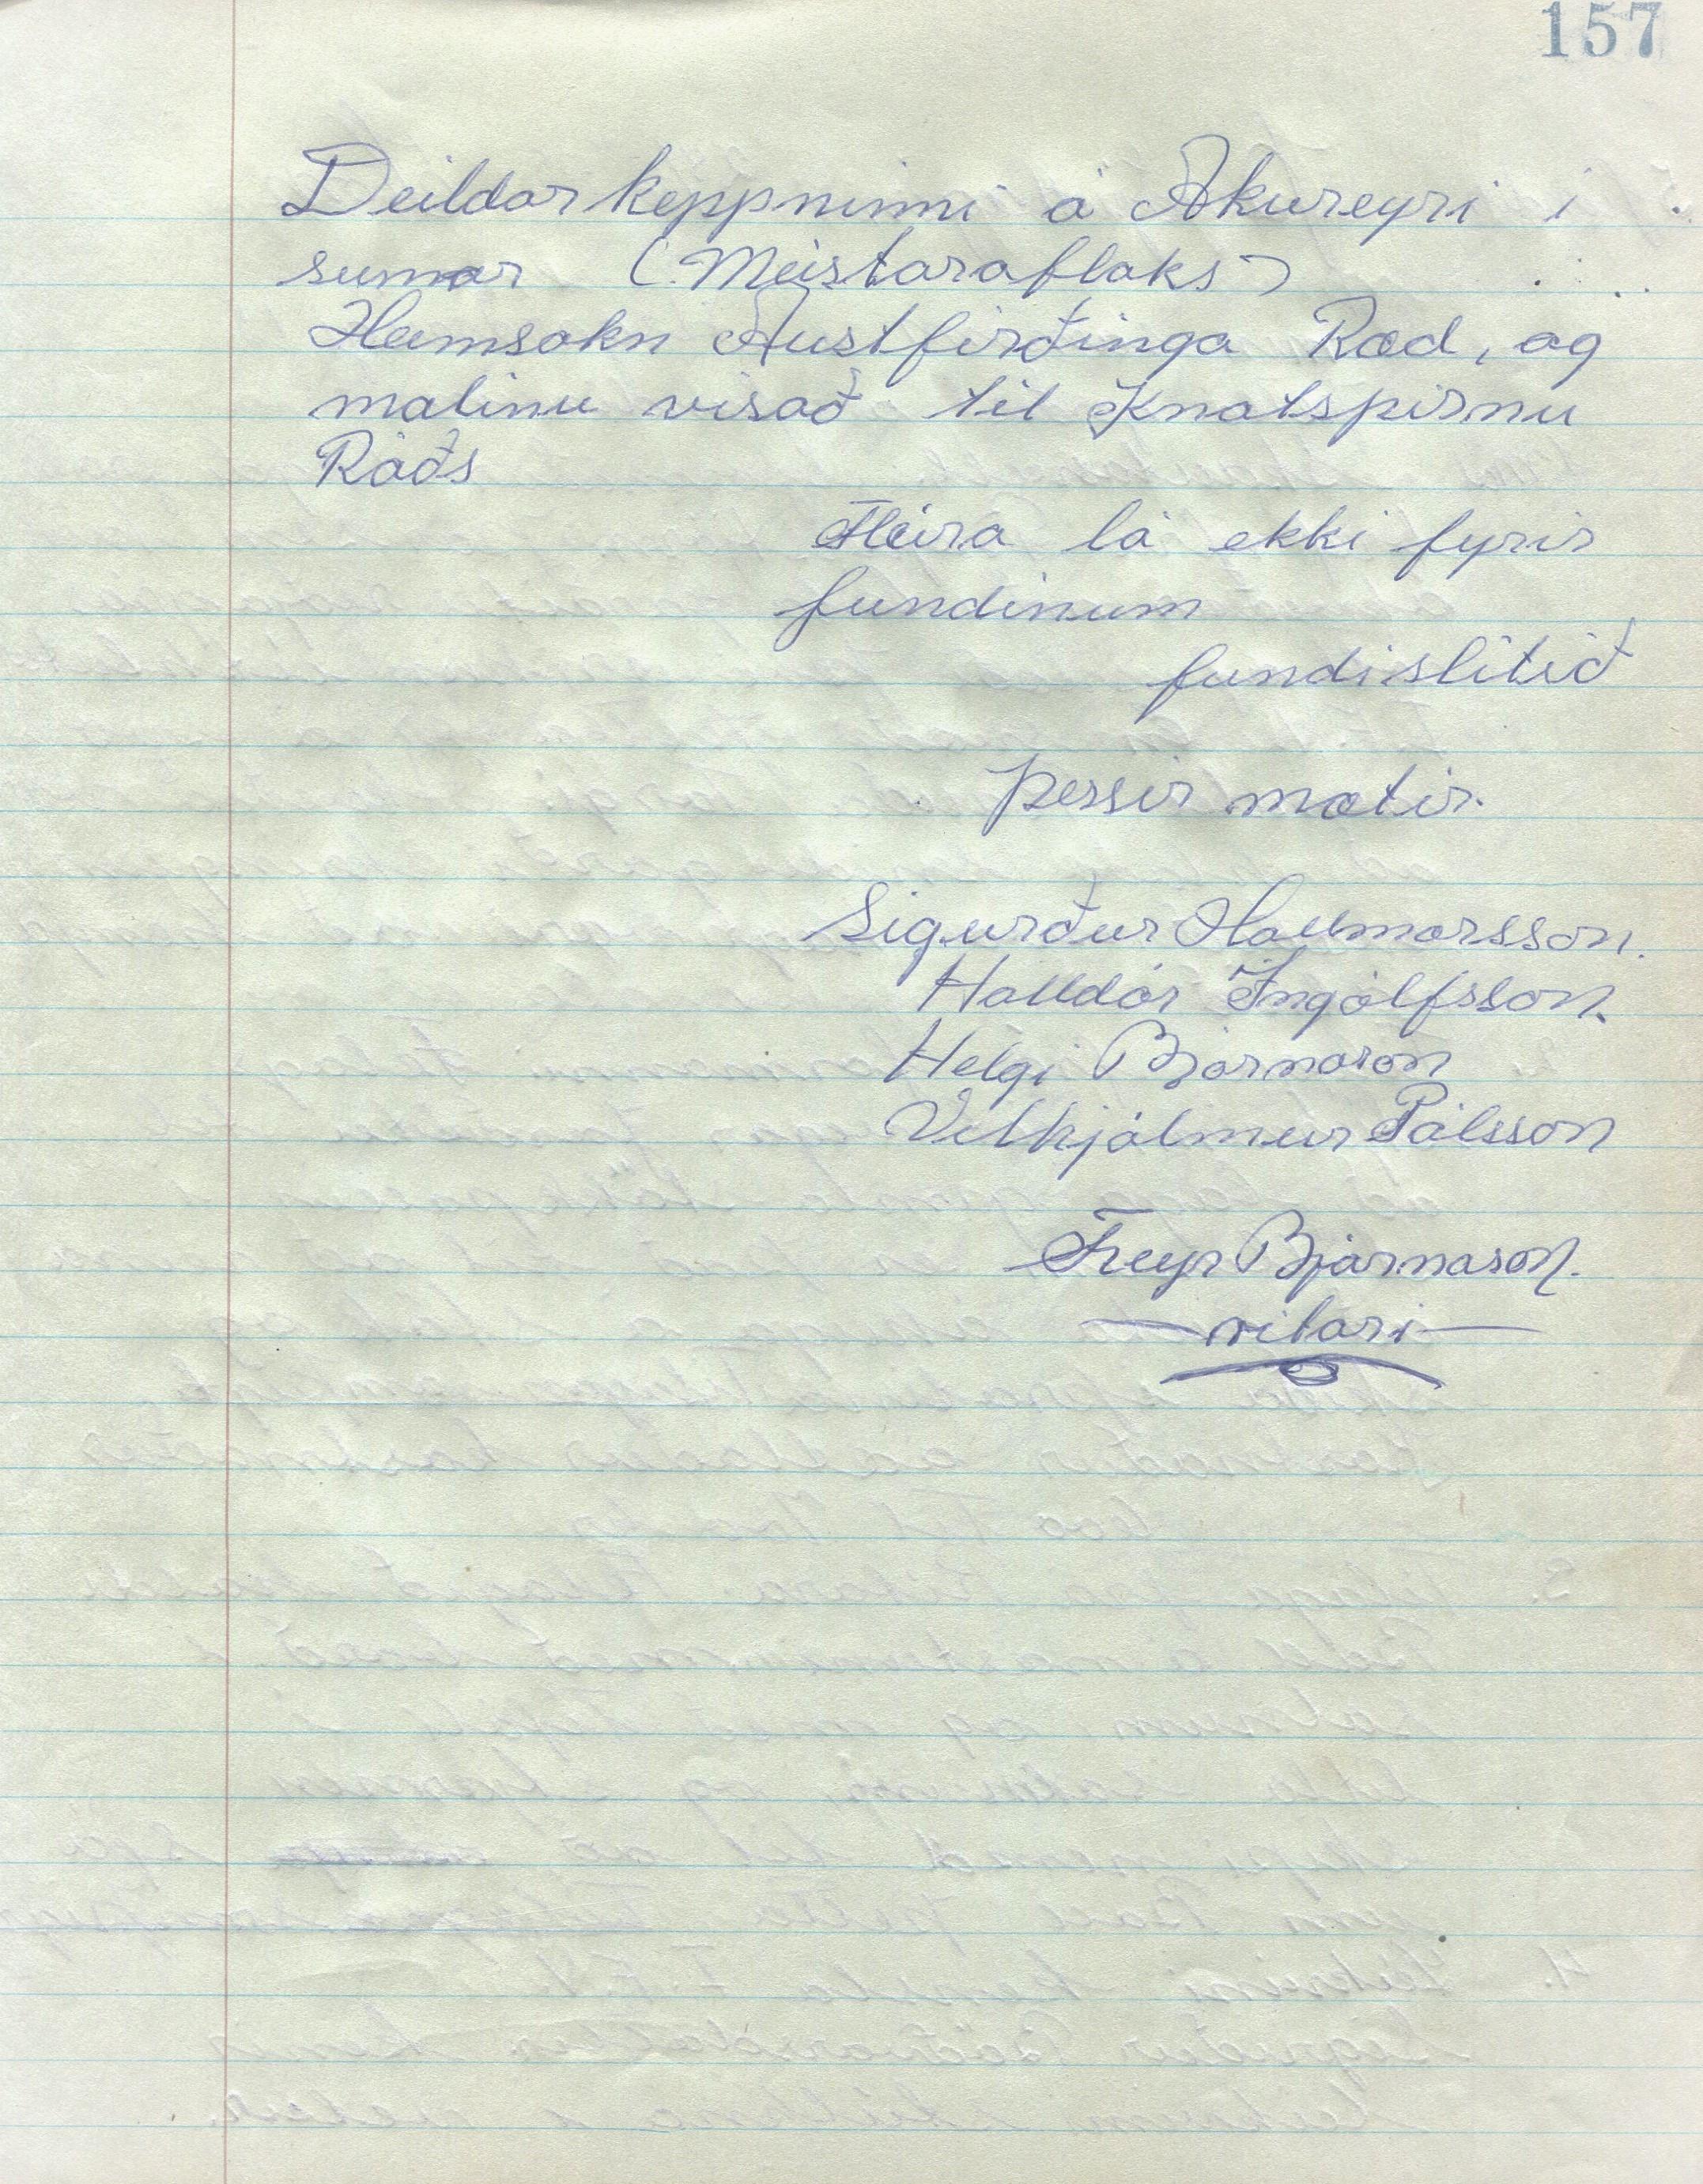 157
Deildarkeppninni á Akureyri i
sumar (Meistaraflaks)
Heimsokn Austfirðinga Ræd, og
malinu visað til Knatspirnu
Ráðs
Fleira lá ekki fyrir
fundinum
fundislitið
Þessir mætir.
Sigurður Hallmarsson.
Halldór Ingólfsson.
Helgi Bjarnason
Vilhjálmur Pálsson
Freyr Bjarnason.
—ritari—